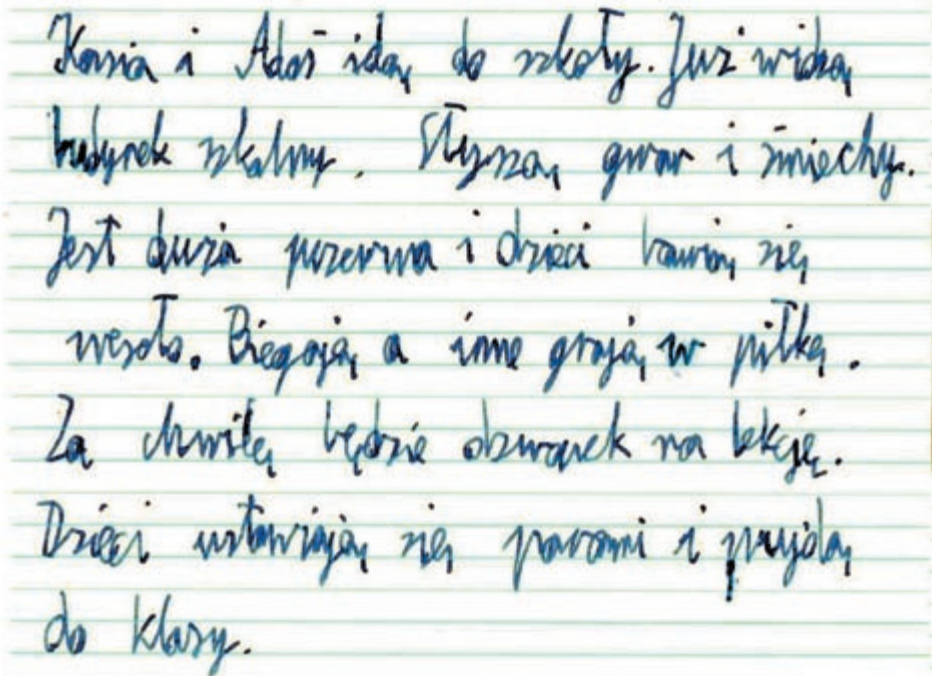 Kasia i Adaś idą do szkoły. Już widzą
budynek szkolny. Słyszą gwar i śmiechy.
Jest duża przerwa i dzieci bawią się
wesoło. Biegają a inne grają w piłkę.
Za chwilę będzie dzwonek na lekcję.
Dzieci ustawiają się parami i pujdą
do klasy.